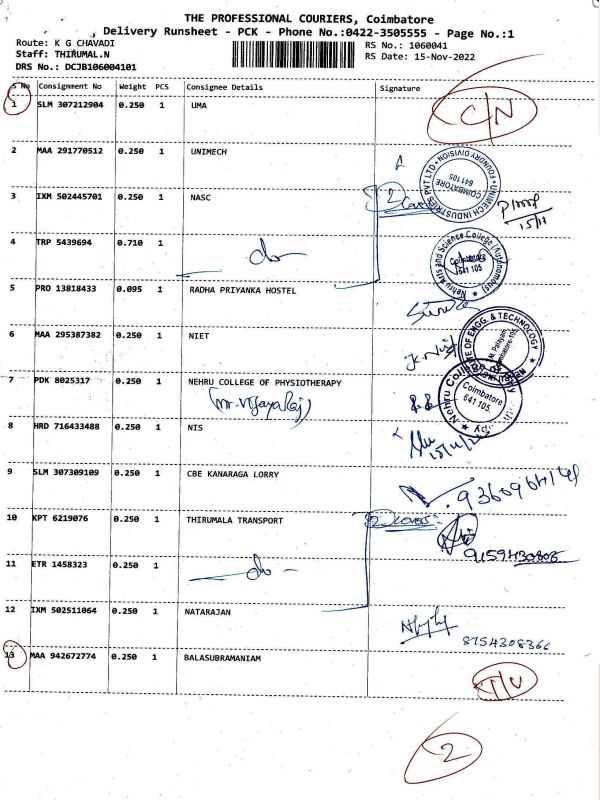 THE PROFESSIONAL COURIERS, Coimbatore
Delivery Runsheet - PCK - Phone No.:0422-3505555 - Page No.:1
Route: K G CHAVADI
RS No.: 1060041
Staff: THIRUMAL.N
RS Date: 15-Nov-2022
DRS No.: DCJB106004101
S No Consignment No Weight PCS Consignee Details Signature
1 SLM 307212904 0.250 1 UMA
C/N
2 MAA 291770512 0.250 1 UNIMECH
UNIMECH INDUSTRIES PVT LTD
FOUNDRY DIVISION
COIMBATORE
641 105
3 IXM 502445701 0.250 1 NASC
2
15/11
4 TRP 5439694 0.710 1 do
Nehru Arts and Science College (Autonomous)
Coimbatore
641 105
5 PRO 13818433 0.095 1 RADHA PRIYANKA HOSTEL
6 MAA 295387382 0.250 1 NIET
OF ENGG. & TECHNOLOGY
7 PDK 8025317 0.250 1 NEHRU COLLEGE OF PHYSIOTHERAPY
(Mr. Vijaya Raj)
Nehru College
Coimbatore
641 105
8 HRD 716433488 0.250 1 NIS
9 SLM 307309109 0.250 1 CBE KANARAGA LORRY
10 KPT 6219076 0.250 1 THIRUMALA TRANSPORT
2 covers
11 ETR 1458323 0.250 1 do
12 IXM 502511064 0.250 1 NATARAJAN
8754308366
13 MAA 942672774 0.250 1 BALASUBRAMANIAM
2